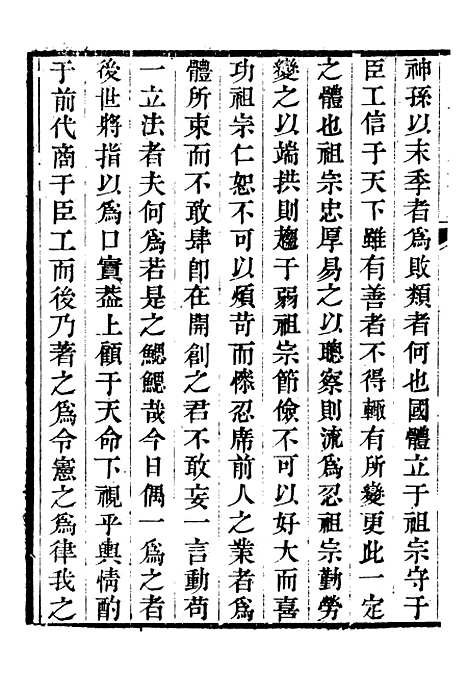 神孫以末季者爲敗類者何也國體立于祖宗守于
臣工信于天下雖有善者不得輙有所變更此一定
之體也祖宗忠厚易之以聰察則流爲忍祖宗勤勞
變之以端拱則趨于弱祖宗節儉不可以好大而喜
功祖宗仁恕不可以煩苛而慘忍席前人之業者爲
體所束而不敢肆卽在開創之君不敢妄一言動苟
一立法者夫何爲若是之鰓鰓哉今日偶一爲之者
後世將指以爲口實葢上顧于天命下視乎輿情酌
于前代商于臣工而後乃著之爲令憲之爲律我之